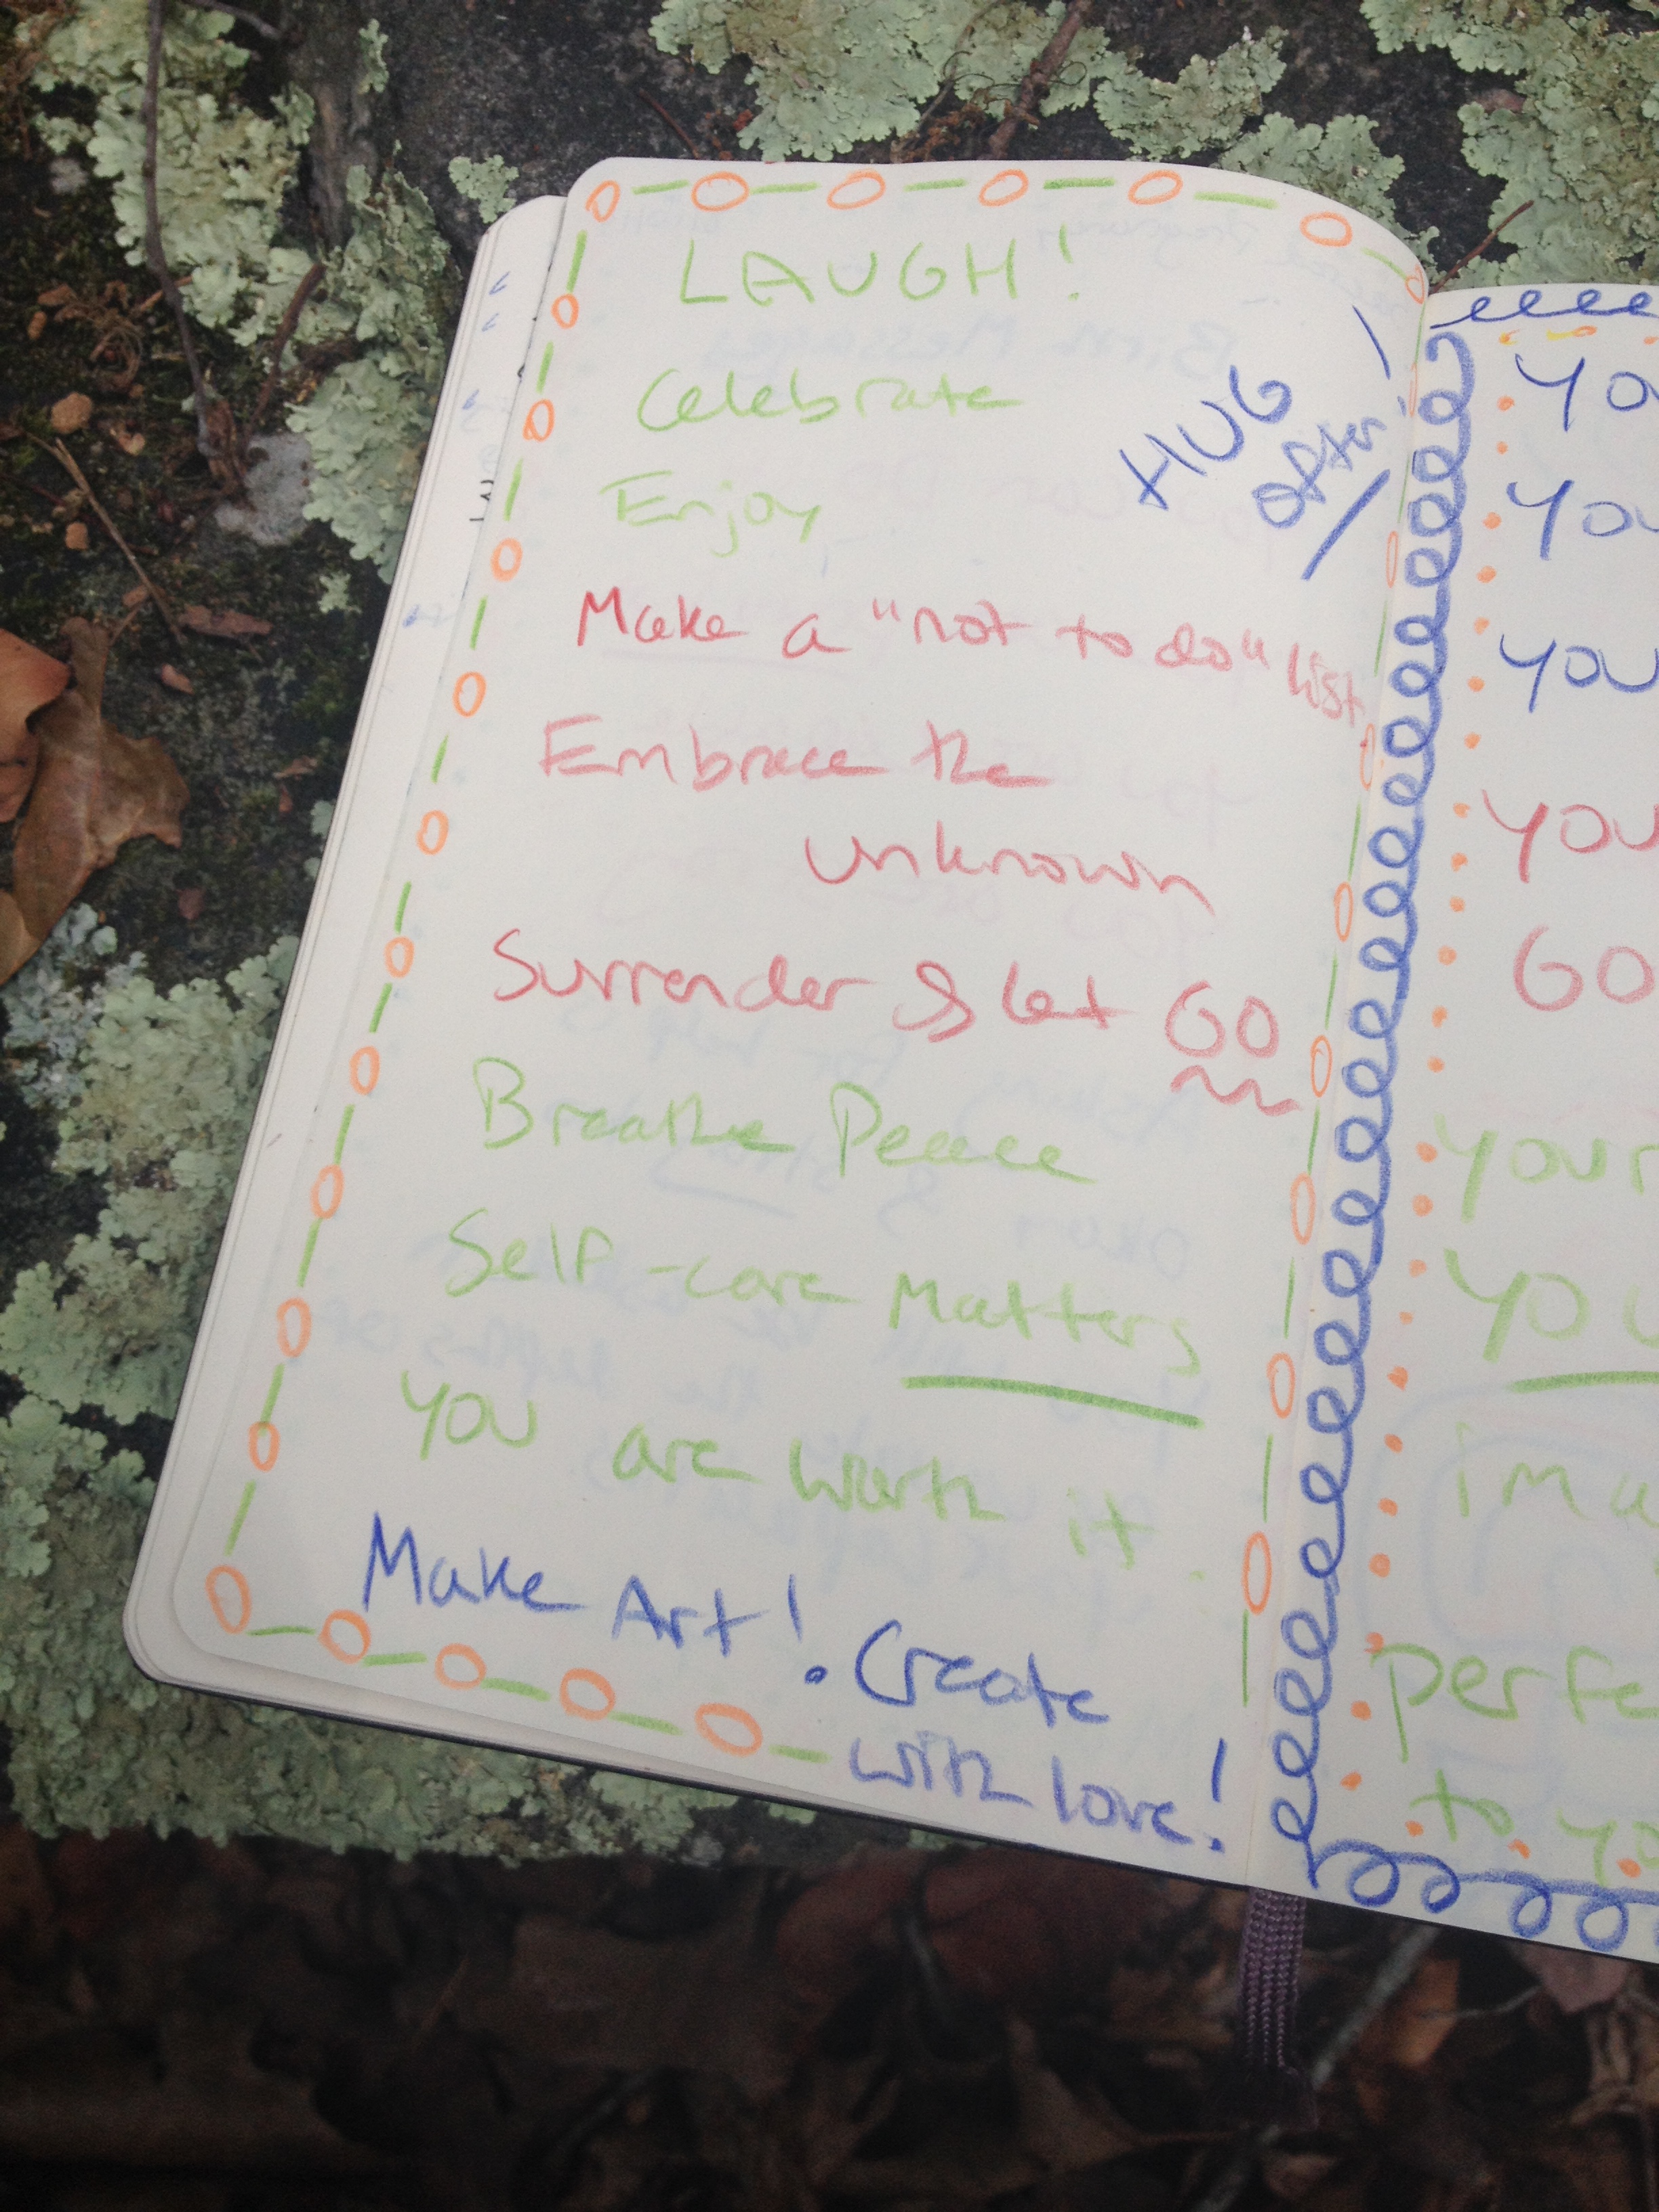 LAUGH!
Celebrate
HUG
often!
Enjoy
Make a "not to do" list
Embrace the
unknown
Surrender & let GO
Breathe Peace
Self-care Matters
YOU are worth it.
Make Art! Create
with love!
YO
YOU
YOU
YOU
GO
your
YOU
ima
perfe
to yo